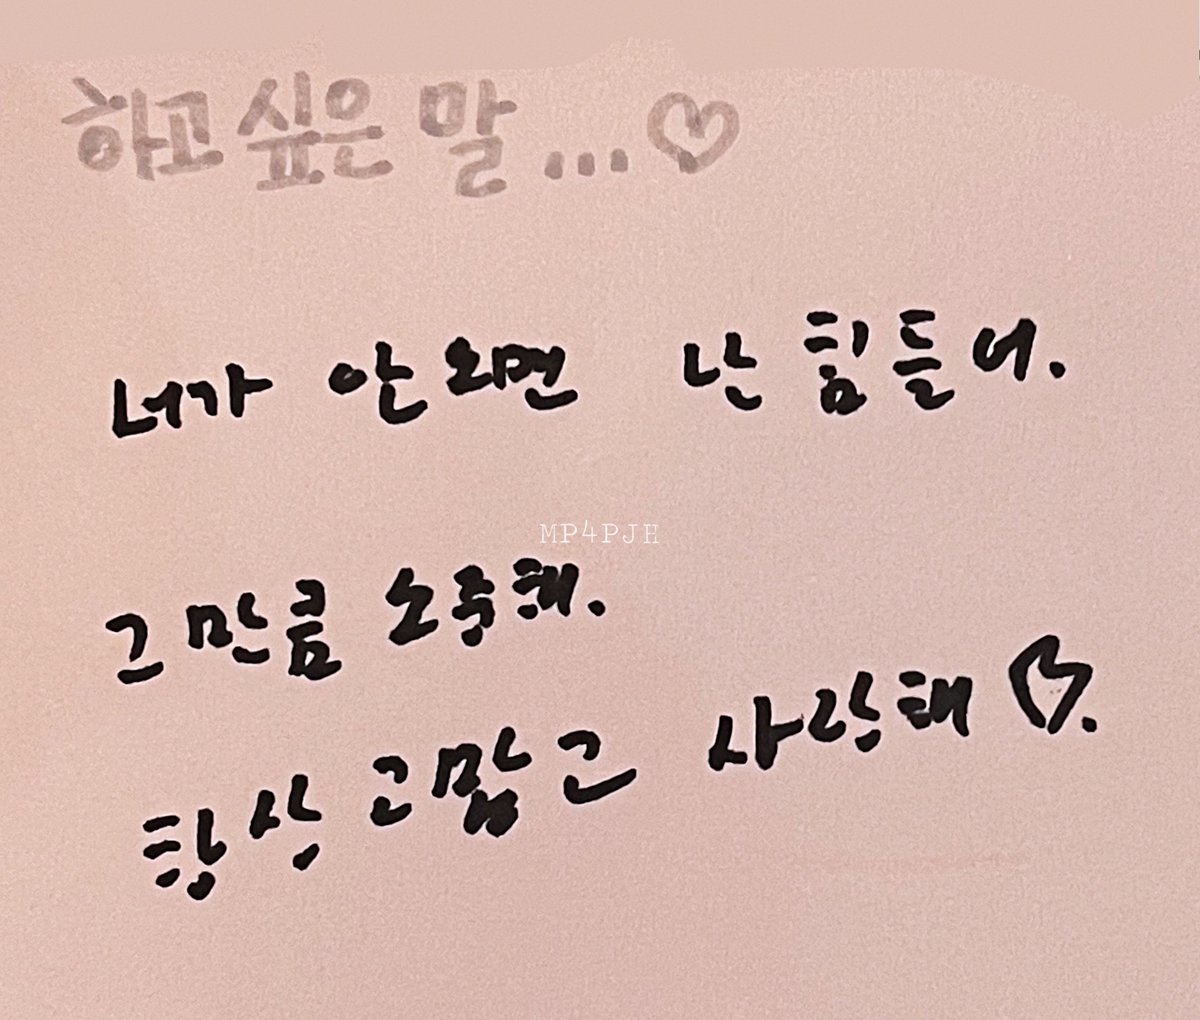 하고싶은 말...♡
너가 안오면 난 힘들어.
MP4PJH
그만큼 소중해.
항상 고맙고 사랑해♡.